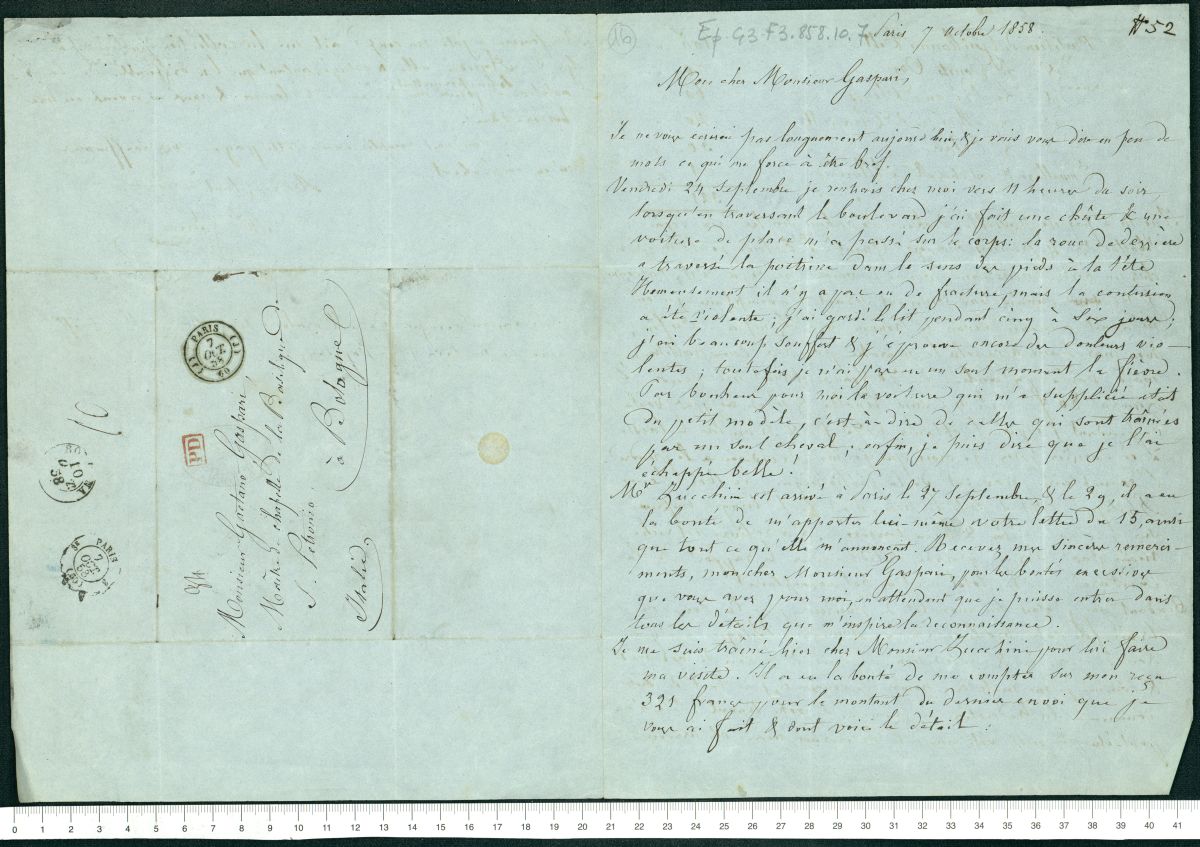 16
Ep. G3-F3.858.10.7
Paris 7 Octobre 1858.
# 52
Mon cher Monsieur Gaspari,
Je ne vous écrirai pas longuement aujourd'hui, & je vais vous dire en peu de
mots ce qui me force à être bref.
Vendredi 24 Septembre je rentrais chez moi vers 11 heures du soir
lorsqu'en traversant le boulevard j'ai fait une chûte & une
voiture de place m'a passé sur le corps: la roue de derrière
a traversé la poitrine dans le sens des pieds à la tête
Heureusement il n'y a pas eu de fracture, mais la contusion
a été violente; j'ai gardé le lit pendant cinq à six jours;
j'ai beaucoup souffert & j'éprouve encore des douleurs vio-
lentes; toutefois je n'ai pas eu un seul moment la fièvre.
Par bonheur pour moi la voiture qui m'a supplicié était
du petit modèle, c'est à dire de celles qui sont trainées
par un seul cheval; enfin, je puis dire que je l'ai
échappé belle.
Mr Zucchini est arrivé à Paris le 27 Septembre, & le 29, il a eu
la bonté de m'apporter lui-même votre lettre du 15, ainsi
que tout ce qu'elle m'annonçait. Recevez mes sincères remerci-
ments, mon cher Monsieur Gaspari, pour les bontés excessives
que vous avez pour moi, en attendant que je puisse entrer dans
tous les détails que m'inspire la reconnaissance.
Je me suis trainé hier chez Monsieur Zucchini pour lui faire
ma visite. Il a eu la bonté de me compter sur mon reçu
321 francs pour le montant du dernier envoi que je
vous ai fait & dont voici le détail:
Monsieur Gaetano Gaspari
Maître de chapelle de la Basilique de
S. Petronio
à Bologne
Italie
PARIS
7
OCT.
58
(J)
(J)
60
PD
10
PARIS
7
OCT
58
0 1 2 3 4 5 6 7 8 9 10 11 12 13 14 15 16 17 18 19 20 21 22 23 24 25 26 27 28 29 30 31 32 33 34 35 36 37 38 39 40 41